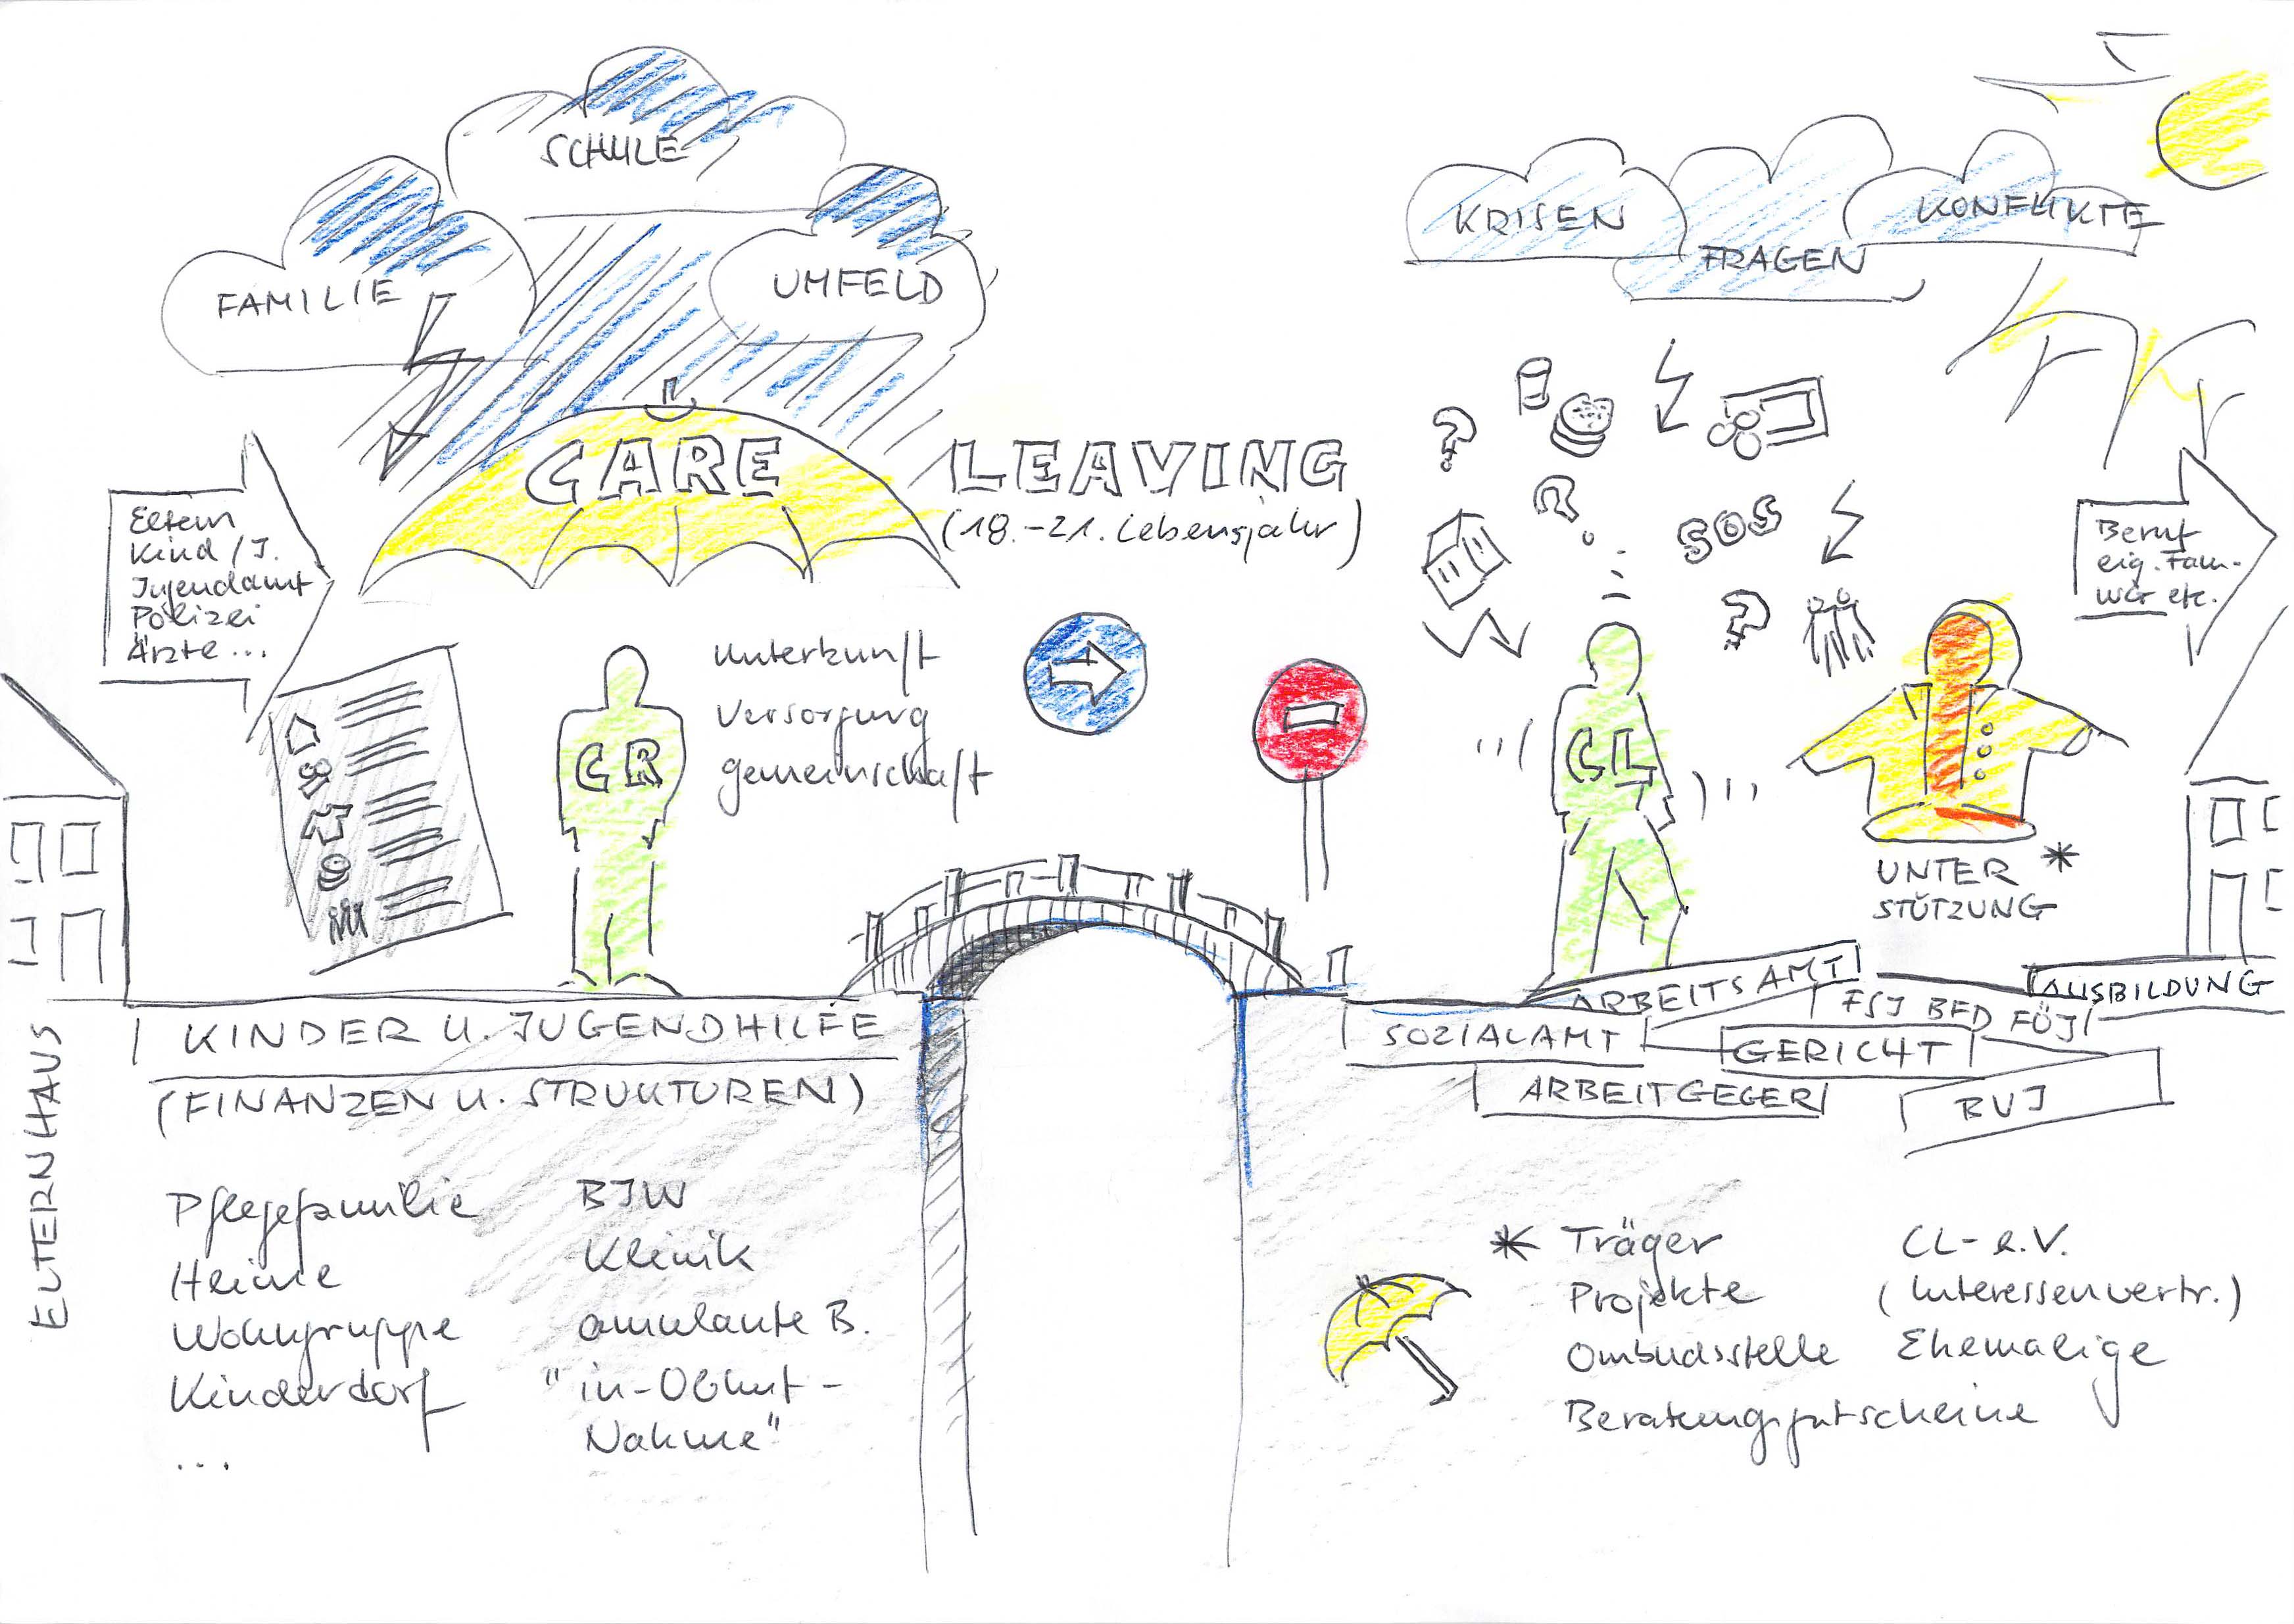 SCHULE
FAMILIE
UMFELD
KRISEN
FRAGEN
KONFLIKTE
CARE
LEAVING
(18.-21. Lebensjahr)
Eltern
Kind / J.
Jugendamt
Polizei
Ärzte ...
Unterkunft
Versorgung
gemeinschaft
CR
SOS
CL
Beruf
eig. Fam.
etc.
UNTER *
STÜTZUNG
ELTERNHAUS
KINDER U. JUGENDHILFE
(FINANZEN U. STRUKTUREN)
ARBEITSAMT
FSJ BFD FÖJ
AUSBILDUNG
SOZIALAMT
GERICHT
ARBEITGEGER
BVJ
Pflegefamilie
Heime
Wohngruppe
Kinderdorf
...
BJW
Klinik
ambulante B.
"in-Obhut-
Nahme"
* Träger
Projekte
Ombudsstelle
Beratungsgutscheine
CL- e.V.
(Interessenvertr.)
Ehemalige